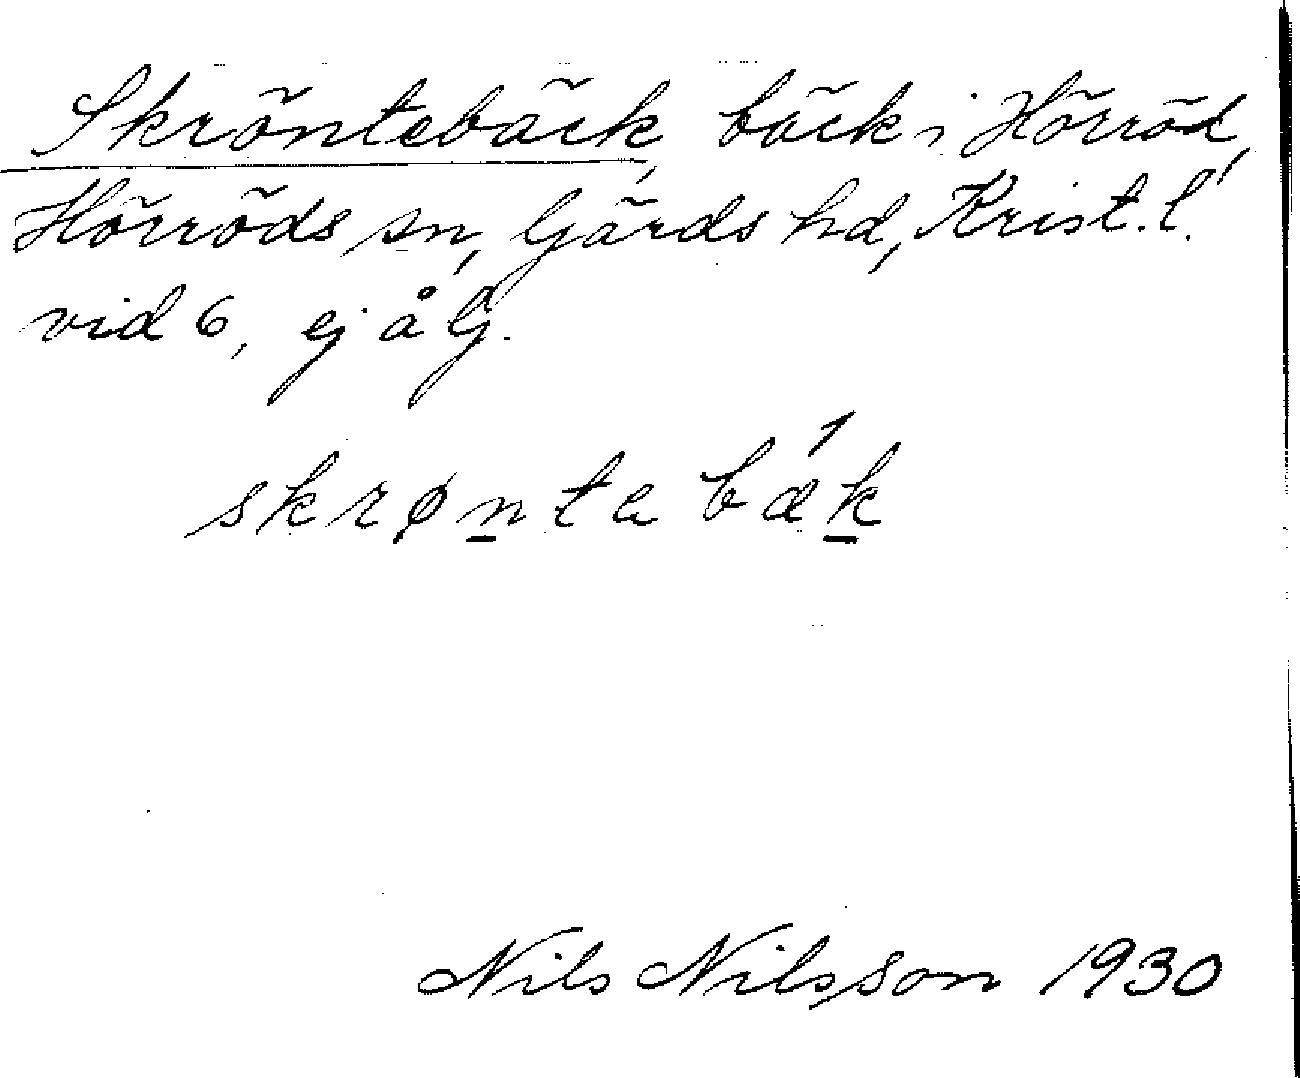 Skröntebäck, bäck i Hörröd,
Hörröds sn, Gärds hd, Krist. l.
vid 6, ej å G.
skrøntabæ´k
Nils Nilsson 1930